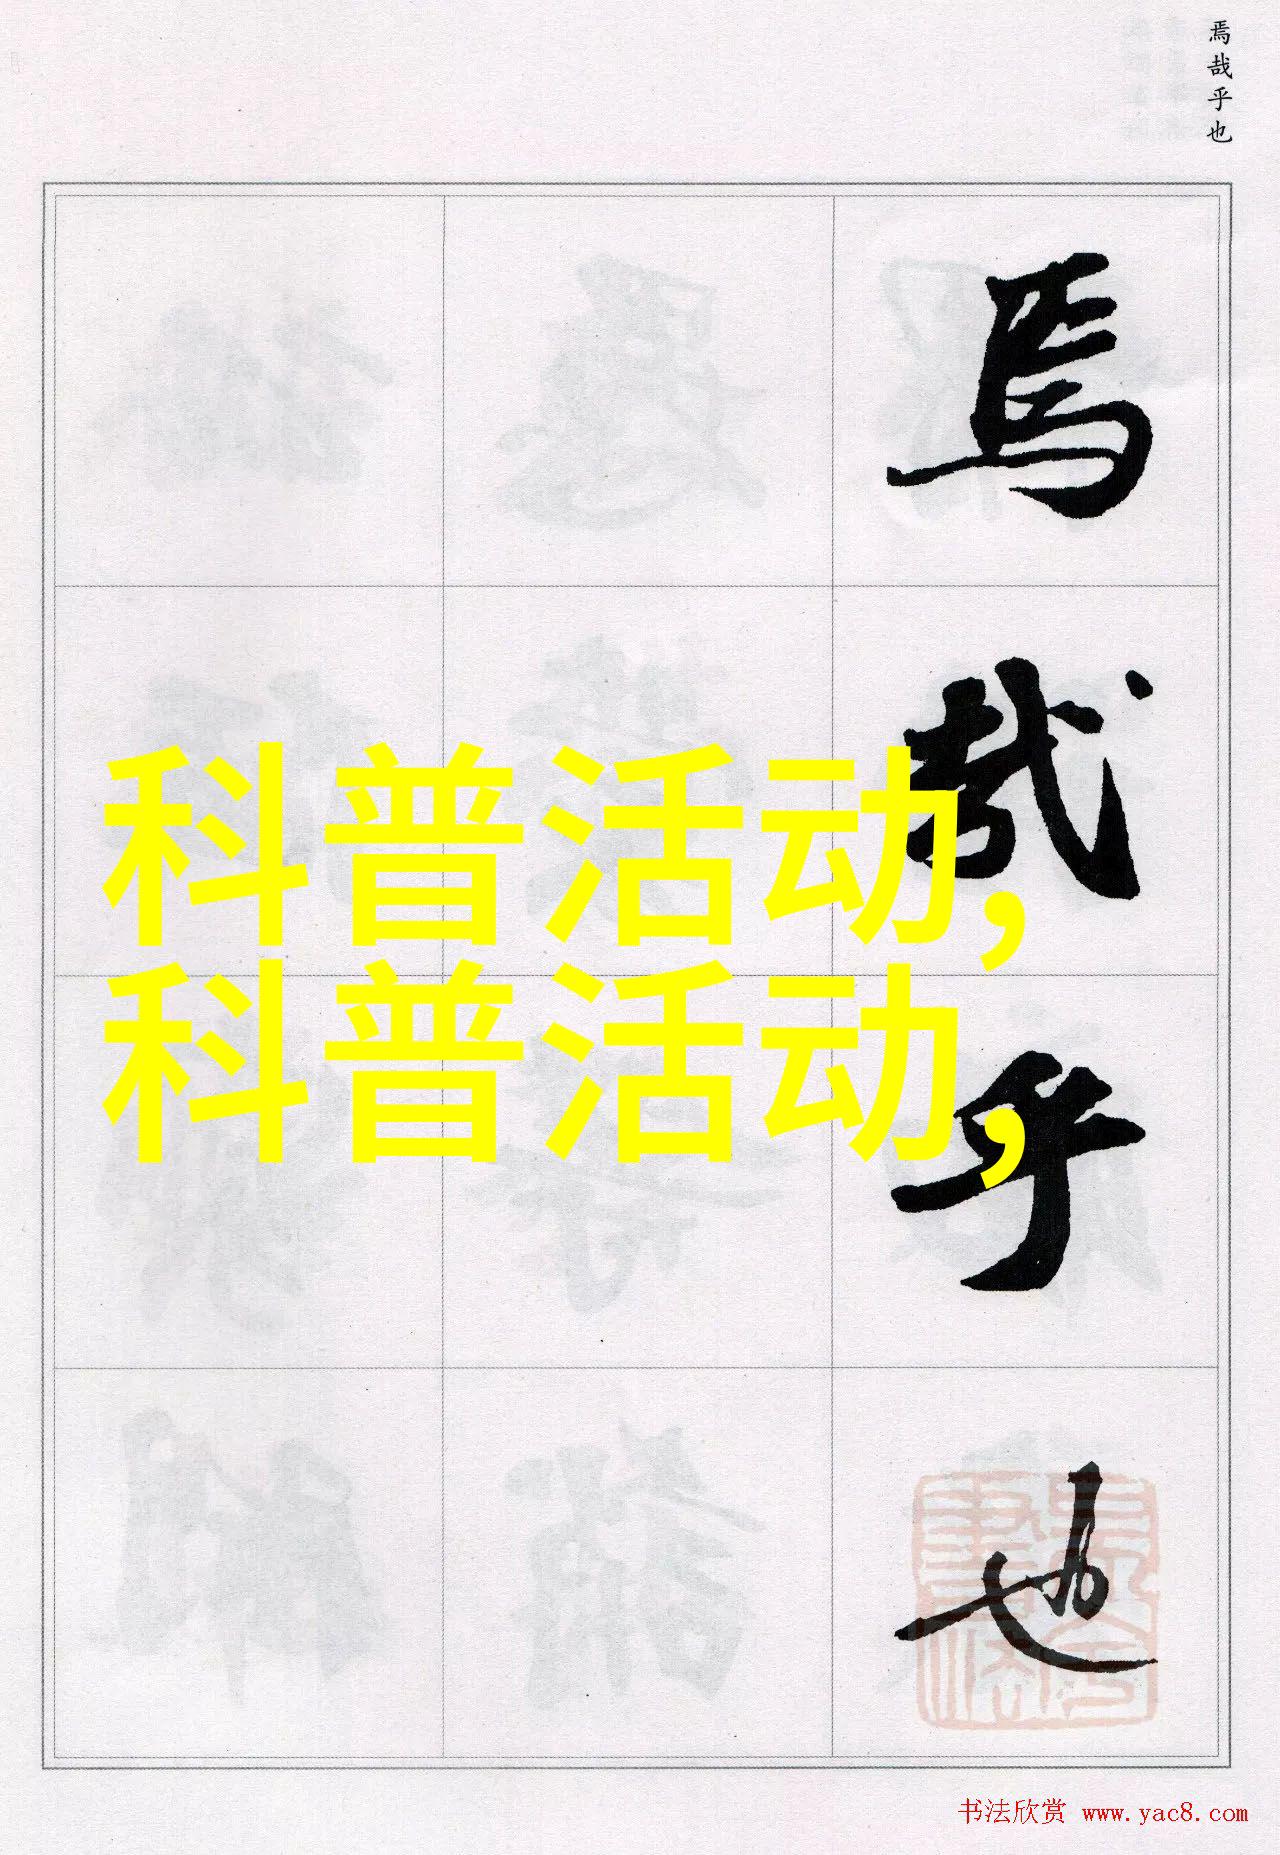 焉哉乎也
焉
哉
乎
也
科普活动,
科普活动,
书法欣赏 www.yac8.com